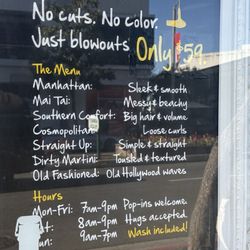 No cuts. No color.
Just blowouts Only $59.
The Menu
Manhattan: Sleek & smooth
Mai Tai: Messy & beachy
Southern Comfort: Big hair & volume
Cosmopolitan: Loose curls
Straight Up: Simple & straight
Dirty Martini: Tousled & textured
Old Fashioned: Old Hollywood waves
Hours
Mon-Fri: 7am-9pm Pop-ins welcome.
8am-9pm Hugs accepted.
9am-7pm Wash included!